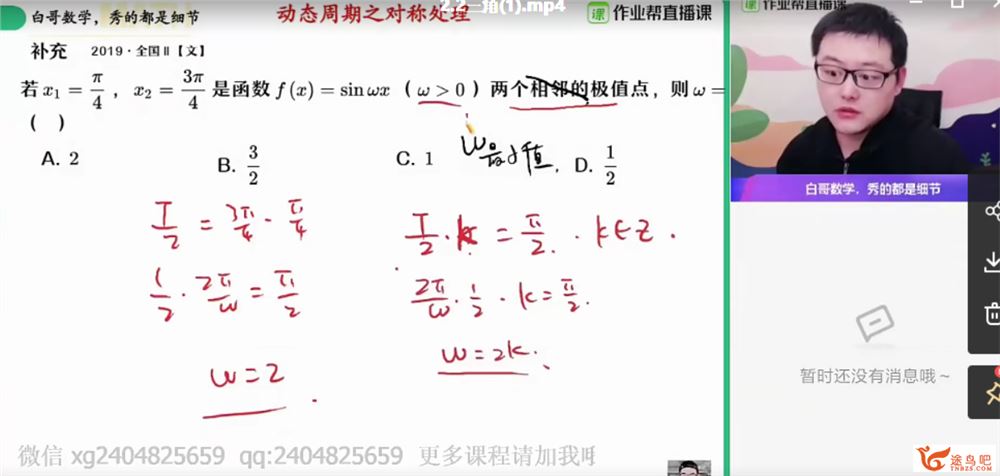 2.2三角(1).mp4
白哥数学，秀的都是细节
动态周期之对称处理
作业帮直播课
作业帮直播课
补充 2019·全国Ⅱ【文】
若 x₁ = π/4 ，x₂ = 3π/4 是函数 f(x) = sin ωx （ω > 0）两个相邻的极值点，则 ω =
( )
A. 2 B. 3/2 C. 1 D. 1/2
W最小值，
T/2 = 3π/4 - π/4
1/2 · 2π/ω = π/2
ω = 2
T/2 · k = π/2 . k∈Z .
2π/ω · 1/2 · k = π/2 .
ω = 2k .
白哥数学，秀的都是细节
暂时还没有消息哦~
微信 xg2404825659 qq:2404825659 更多课程请加我
途鸟吧
TNBZS.COM